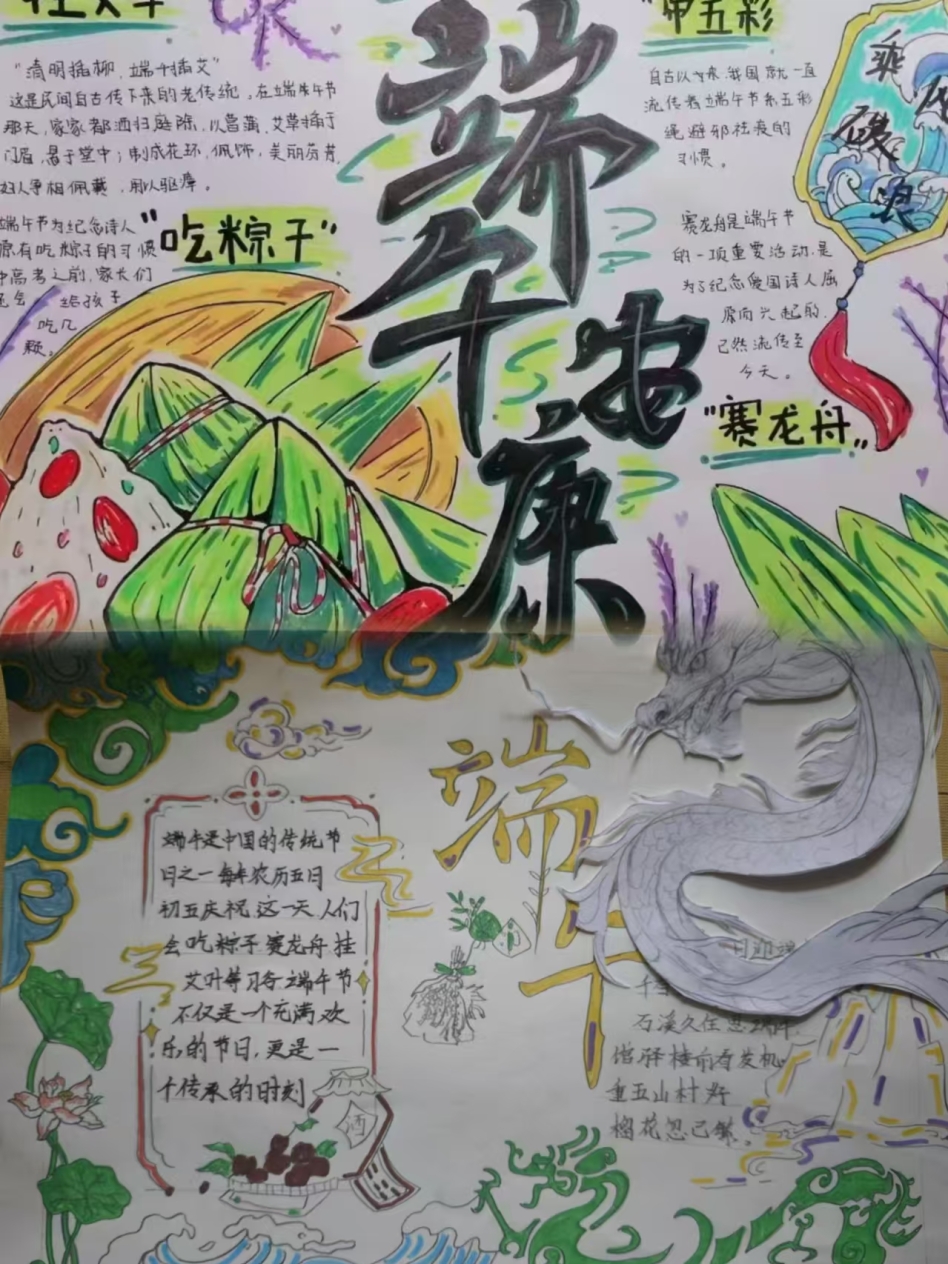 "清明插柳，端午插艾"
这是民间自古传下来的老传统，在端午节
那天，家家都洒扫庭除，以菖蒲、艾草插于
门眉，悬于堂中；制成花环、佩饰，美丽芬芳，
妇人争相佩戴，用以驱瘴。
"吃粽子"
端午节为纪念诗人
原有吃粽子的习惯
中高考之前，家长们
还会给孩子
吃几
颗。
端午安康
"带五彩
自古以来，我国就一直
流传着端午节系五彩
绳避邪祛夜的
习惯。
乘风
破
浪
赛龙舟是端午节
的一项重要活动，是
为了纪念爱国诗人屈
原而兴起的，
已然流传至
今天。
"赛龙舟"
端午
端午是中国的传统节
日之一每年农历五日
初五庆祝 这一天人们
会吃粽子赛龙舟挂
艾叶等习俗 端午节
不仅是一个充满欢
乐的节日，更是一
个传承的时刻
酒
石溪久住思端午
馆驿楼前看发机
重五山村好
榴花忽已繁。